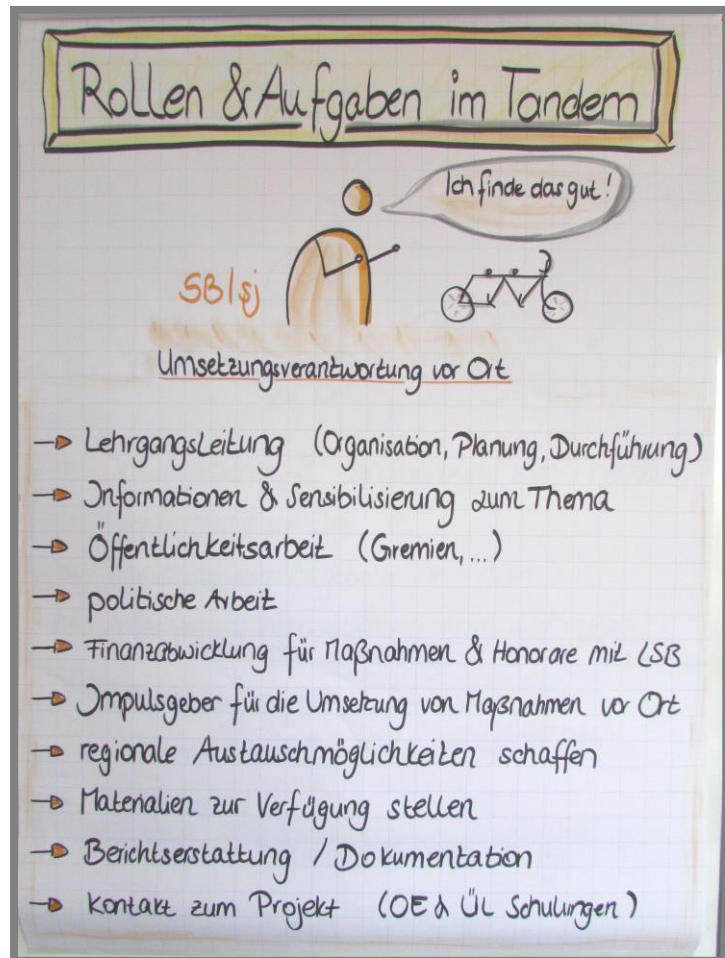 Rollen & Aufgaben im Tandem
Ich finde das gut!
SB/sj
Umsetzungsverantwortung vor Ort
Lehrgangsleitung (Organisation, Planung, Durchführung)
Informationen & Sensibilisierung zum Thema
Öffentlichkeitsarbeit (Gremien, ...)
politische Arbeit
Finanzabwicklung für Maßnahmen & Honorare mit LSB
Impulsgeber für die Umsetzung von Maßnahmen vor Ort
regionale Austauschmöglichkeiten schaffen
Materialien zur Verfügung stellen
Berichtserstattung / Dokumentation
Kontakt zum Projekt (OE & ÜL Schulungen)